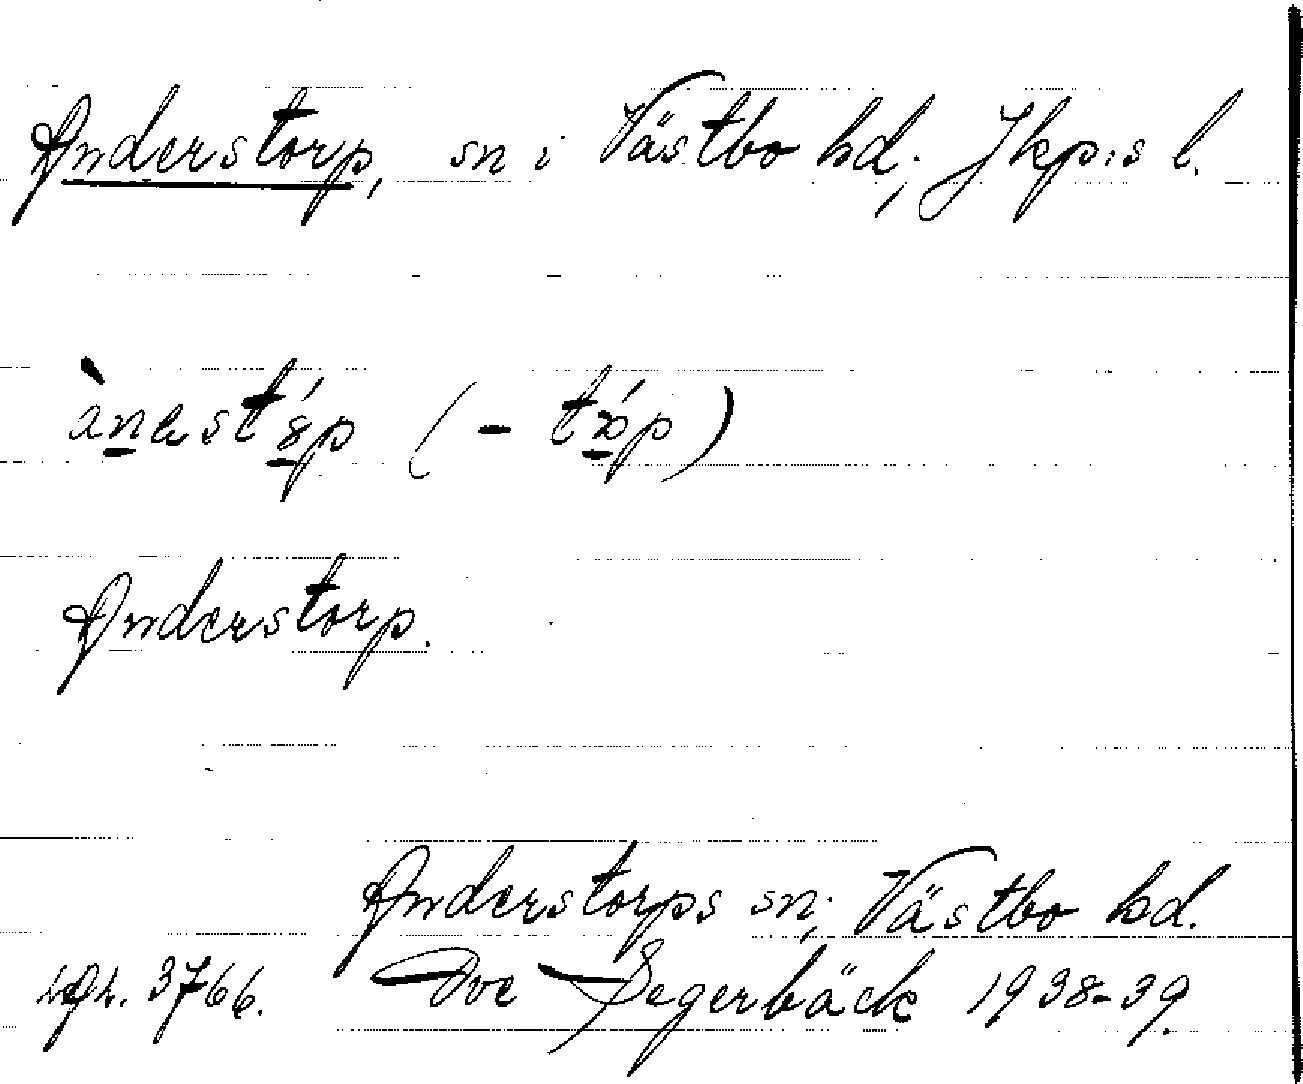 Anderstorp, sn i Västbo hd; Jkp:s l.
Anderstorp.
Anderstorps sn; Västbo hd.
3766. Ove Segerbäck 1938-39.